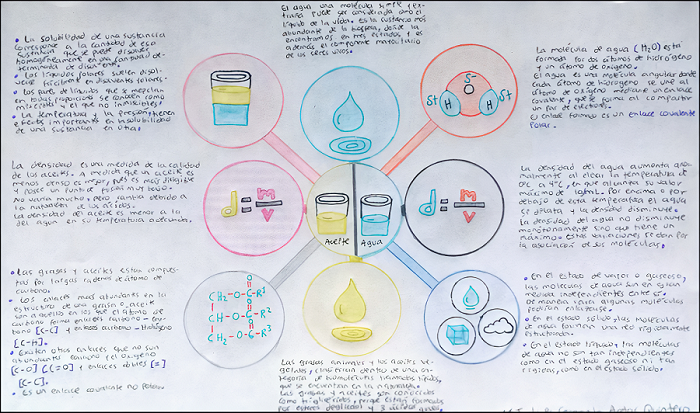 El agua una molécula simple y ex-
traña puede ser considerada como el
líquido de la vida. Es la sustancia más
abundante de la biosfera, donde la
encontramos en tres estados y es
además el componente mayoritario
de los seres vivos.
• La solubilidad de una sustancia
corresponde a la cantidad de esa
sustancia que se puede disolver
homogéneamente en una cantidad de-
terminada de disolvente.
• Los líquidos polares suelen disol-
verse fácilmente en disolventes polares.
• Los pares de líquidos que se mezclan
en todas proporciones se conocen como
miscibles, el que no inmiscibles.
• La temperatura y la presión, tienen
efectos importantes en la solubilidad
de una sustancia en otra.
La molécula de agua (H2O) está
formada por dos átomos de hidrógeno
y un átomo de oxígeno.
El agua es una molécula angular donde
cada átomo de hidrógeno se une al
átomo de oxígeno mediante un enlace
covalente, que se forma al compartir
un par de electrones.
El enlace formado es un enlace covalente
polar.
S-
O
St H H St
La densidad es una medida de la calidad
de los aceites. A medida que un aceite es
menos denso es mejor, pues es más digerible
y posee un punto de
No varía mucho, pero cambia debido a
la naturaleza de los ácidos.
La densidad del aceite es menor a la
del agua en su temperatura adecuada.
d = m/v
Aceite
Agua
d = m/v
La densidad del agua aumenta anor-
malmente al elevar la temperatura de
0°C a 4°C, en que alcanza su valor
máximo de 1g/mL. Por encima o por
debajo de esta temperatura el agua
se dilata y la densidad disminuye.
La densidad del agua no disminuye
monótonamente sino que tiene un
máximo. Estas variaciones se dan por
la asociación de sus moléculas.
• Las grasas y aceites están compues-
tos por largas cadenas de átomo de
carbono.
• Los enlaces mas abundantes en la
estructura de una grasa o aceite
son aquellos en los que el átomo de
carbono forma enlaces carbono - car-
bono [C-C] y enlaces carbono - hidrógeno
[C-H].
• Existen otros enlaces que no son
abundantes carbono y el oxígeno
[C-O] [C=O] y enlaces dobles [=]
[C-C].
• Es un enlace covalente no polar.
O
CH2-O-C-R1
O
CH-O-C-R2
O
CH2-O-C-R3
• En el estado de vapor o gaseoso,
las moléculas de agua son en gran
medida independientes entre si.
De manera rara algunas moléculas
podrían enlazarse.
• En el estado sólido las moléculas
de agua forman una red rígidamente
estructurada.
• En el estado líquido, las moléculas
de agua no son tan independientes
como en el estado gaseoso ni tan
rígidas, como en el estado sólido.
Las grasas animales y los aceites ve-
getales, clasifican dentro de una ca-
tegoría de biomoléculas llamadas lípidos,
que se encuentran en la naturaleza.
Las grasas y aceites son conocidos
como triglicéridos, porque están formados
por